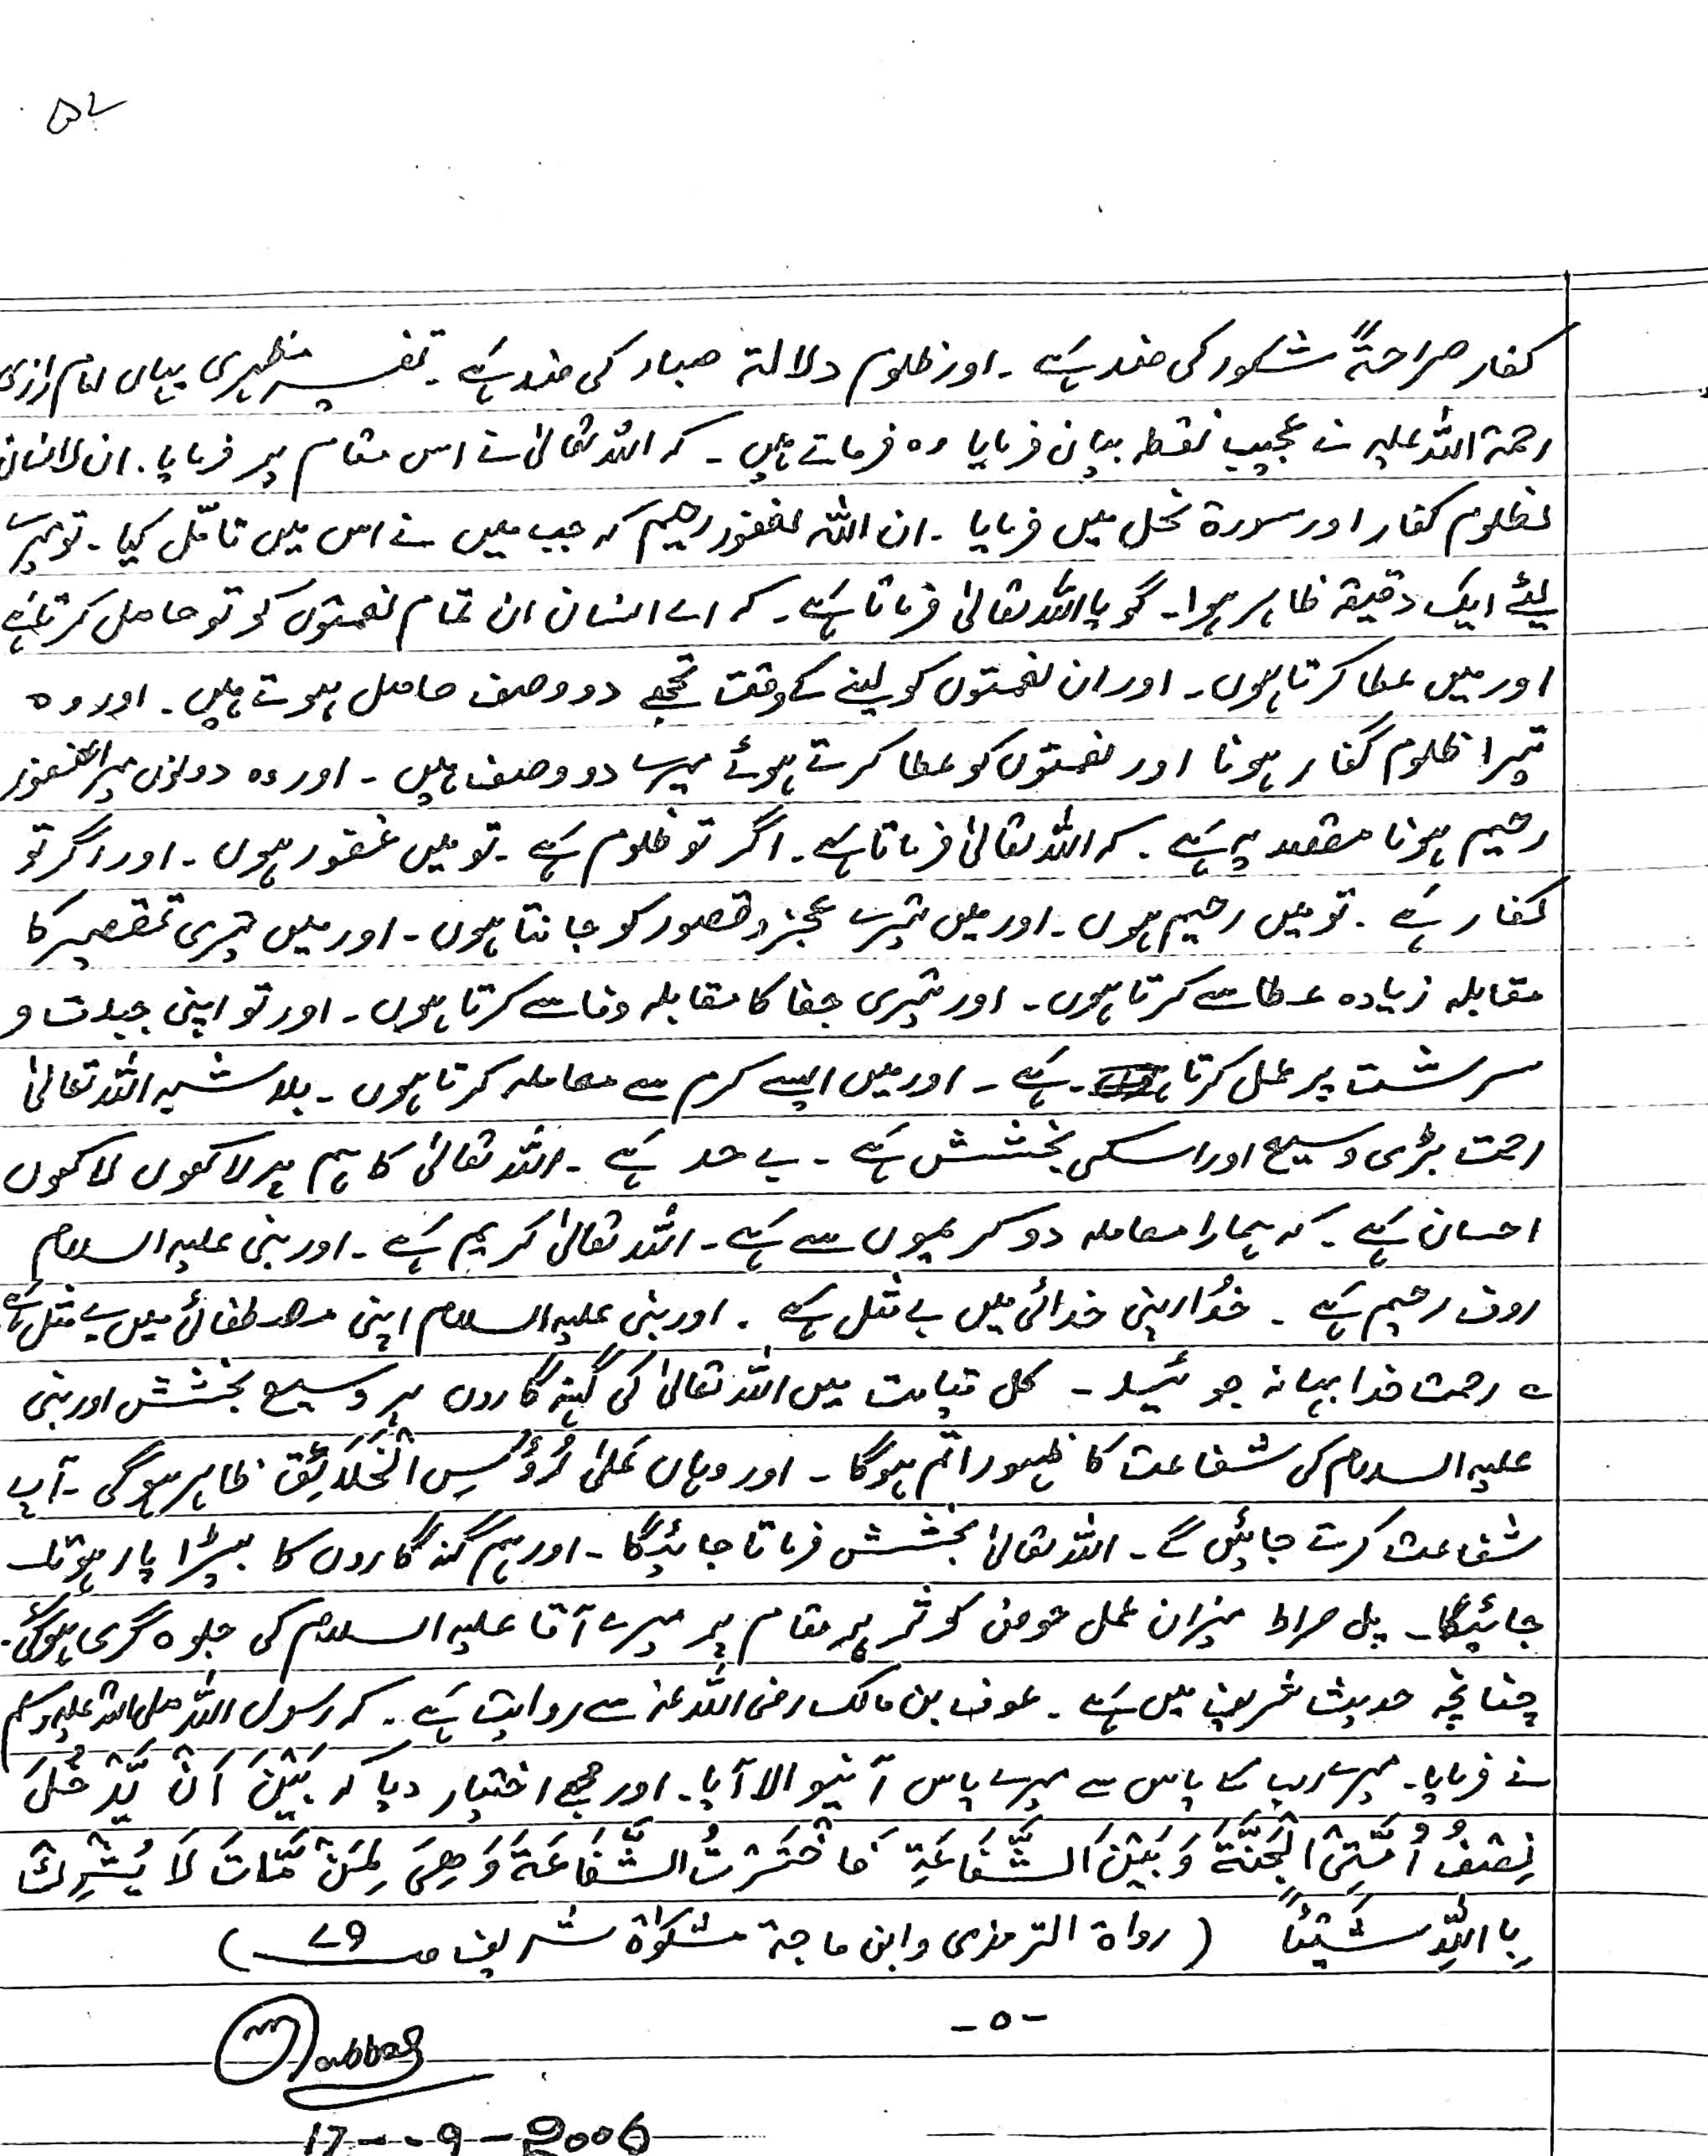 ۵۷
کفار صراحۃً شکور کی ضد ہے ۔ اور ظلوم دلالۃ صبار کی ضد ہے ۔ تفسیر مظہری یہاں امام رازی
رحمۃ اللہ علیہ نے عجیب نقطہ بیان فرمایا وہ فرماتے ہیں ۔ کہ اللہ تعالیٰ نے اس مقام پر فرمایا ۔ ان الانسان
لظلوم کفار اور سورۃ نحل میں فرمایا ۔ ان اللہ لغفور رحیم کہ جب میں نے اس میں تامّل کیا ۔ تو میرے
لیئے ایک دقیقہ ظاہر ہوا ۔ گویا اللہ تعالیٰ فرماتا ہے ۔ کہ اے انسان ان تمام نعمتوں کو تو حاصل کرتا ہے
اور میں عطا کرتا ہوں ۔ اور ان نعمتوں کو لینے کے وقت تجھے دو وصف حاصل ہوتے ہیں ۔ اور وہ
تیرا ظلوم کفار ہونا اور نعمتوں کو عطا کرتے ہوئے میرے دو وصف ہیں ۔ اور وہ دونوں میرا غفور
رحیم ہونا مقصد یہ ہے ۔ کہ اللہ تعالیٰ فرماتا ہے ۔ اگر تو ظلوم ہے ۔ تو میں غفور ہوں ۔ اور اگر تو
کفار ہے ۔ تو میں رحیم ہوں ۔ اور میں تیرے عجز و قصور کو جانتا ہوں ۔ اور میں تیری تقصیر کا
مقابلہ زیادہ عطا سے کرتا ہوں ۔ اور تیری جفا کا مقابلہ وفا سے کرتا ہوں ۔ اور تو اپنی جبلت و
سرشت پر عمل کرتا ہے ۔ اور میں اپنے کرم سے معاملہ کرتا ہوں ۔ بلا شبہ اللہ تعالیٰ
رحمت بڑی وسیع اور اسکی بخشش ہے ۔ بے حد ہے ۔ اللہ تعالیٰ کا ہم پر لاکھوں لاکھوں
احسان ہے ۔ کہ ہمارا معاملہ دو کریموں سے ہے ۔ اللہ تعالیٰ کریم ہے ۔ اور نبی علیہ السلام
روف رحیم ہے ۔ خُدا اپنی خدائی میں بے مثل ہے ۔ اور نبی علیہ السلام اپنی مصطفائی میں بے مثل ہے
ے رحمت خدا بہانہ جو ئید ۔ کل قیامت میں اللہ تعالیٰ کی گنہ گاروں پر وسیع بخشش اور نبی
علیہ السلام کی شفاعت کا ظہور اتم ہوگا ۔ اور وہاں عَلیٰ رُؤُسِ الْخَلَائِقِ ظاہر ہوگی ۔ آپ
شفاعت کرتے جائیں گے ۔ اللہ تعالیٰ بخشش فرماتا جائیگا ۔ اور ہم گنہ گاروں کا بیڑا پار ہوتا
جائیگا ۔ پل صراط میزان عمل حوض کوثر ہر مقام پر میرے آقا علیہ السلام کی جلوہ گری ہوگی ۔
چنانچہ حدیث شریف میں ہے ۔ عوف بن مالک رضی اللہ عنہ سے روایت ہے ۔ کہ رسول اللہ صلی اللہ علیہ وسلم
نے فرمایا ۔ میرے رب کے پاس سے میرے پاس آنیوالا آیا ۔ اور مجھے اختیار دیا کہ بَیْنَ اَنْ یَّدْخُلَ
نِصْفُ اُمَّتِیْ الْجَنَّۃَ وَبَیْنَ الشَّفَاعَۃِ فَاخْتَرْتُ الشَّفَاعَۃَ وَھِیَ لِمَنْ مَّاتَ لَا یُشْرِکُ
بِا اللّٰہِ شَیْئًا ( رواۃ الترمذی وابن ماجۃ مشکوٰۃ شریف صـ ۷۹ )
-۰-
Mabbas
17--9-2006